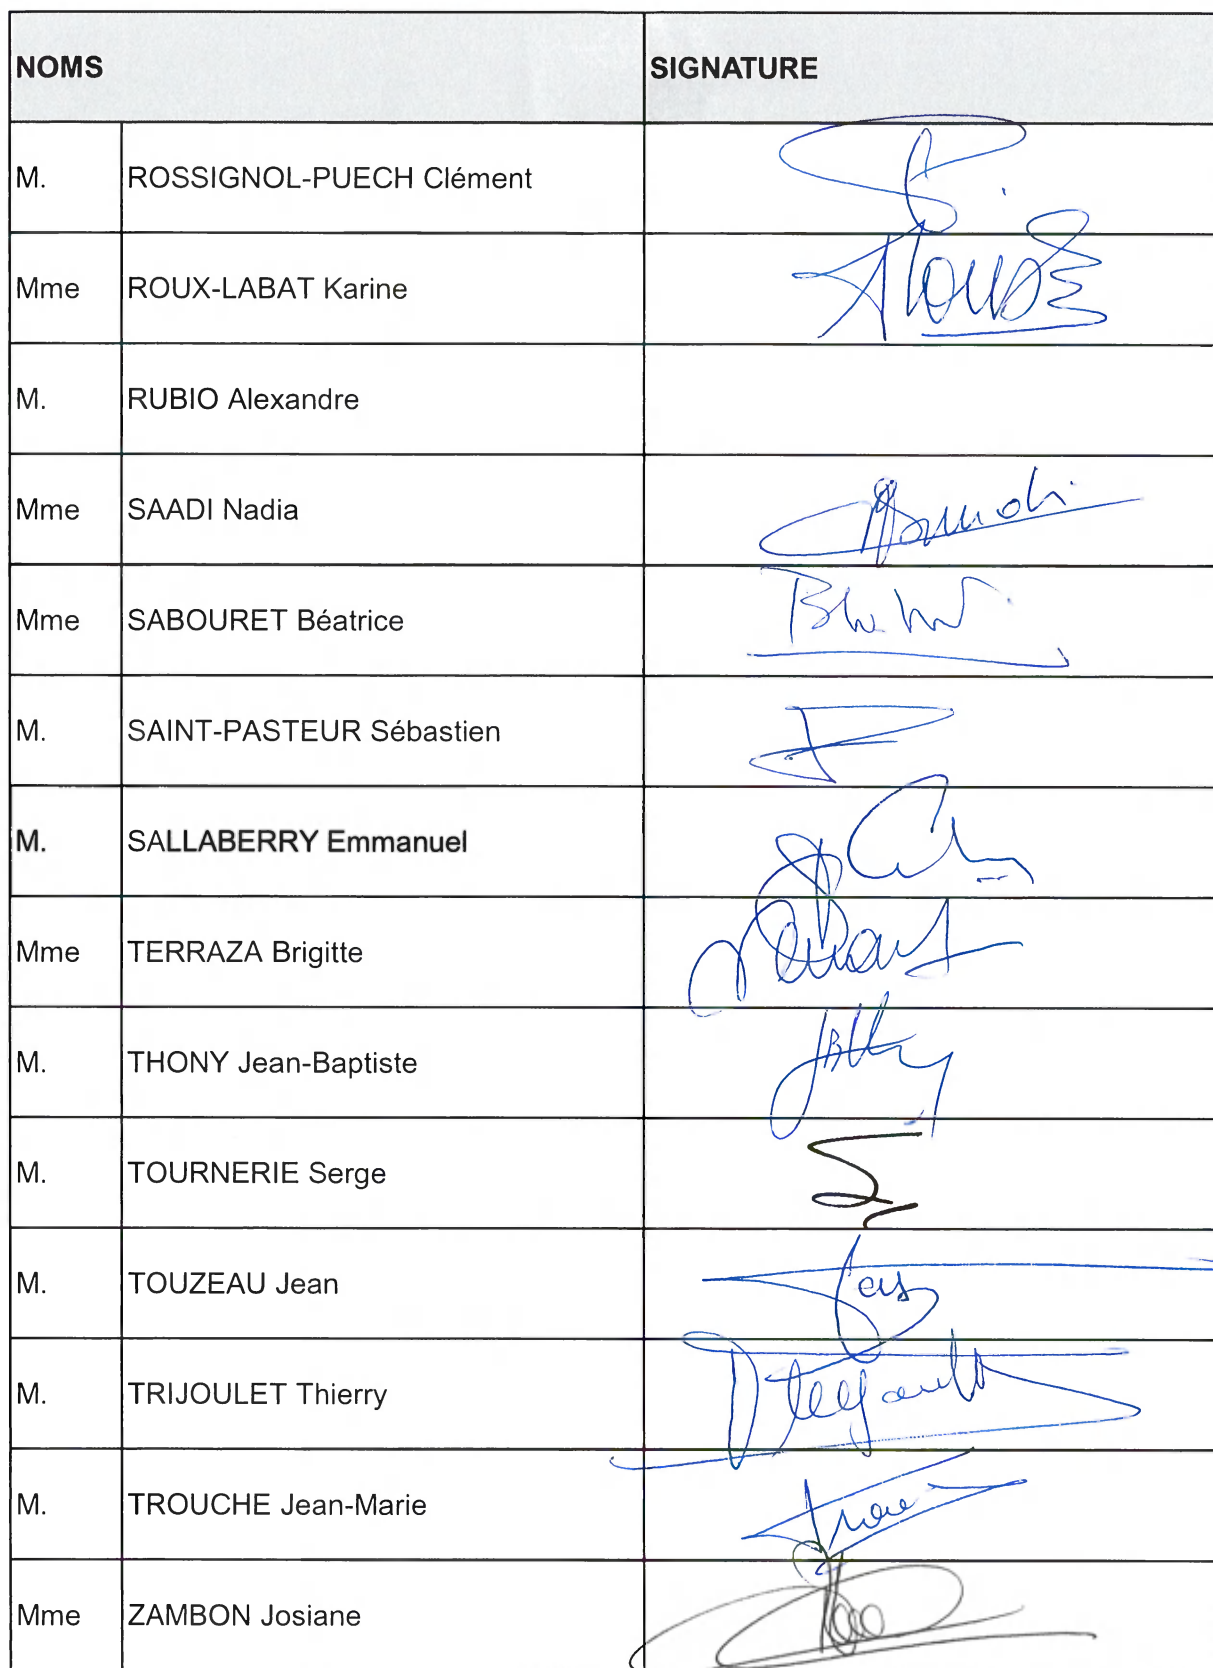 NOMS SIGNATURE
M. ROSSIGNOL-PUECH Clément
Mme ROUX-LABAT Karine
M. RUBIO Alexandre
Mme SAADI Nadia
Mme SABOURET Béatrice
M. SAINT-PASTEUR Sébastien
M. SALLABERRY Emmanuel
Mme TERRAZA Brigitte
M. THONY Jean-Baptiste
M. TOURNERIE Serge
M. TOUZEAU Jean
M. TRIJOULET Thierry
M. TROUCHE Jean-Marie
Mme ZAMBON Josiane